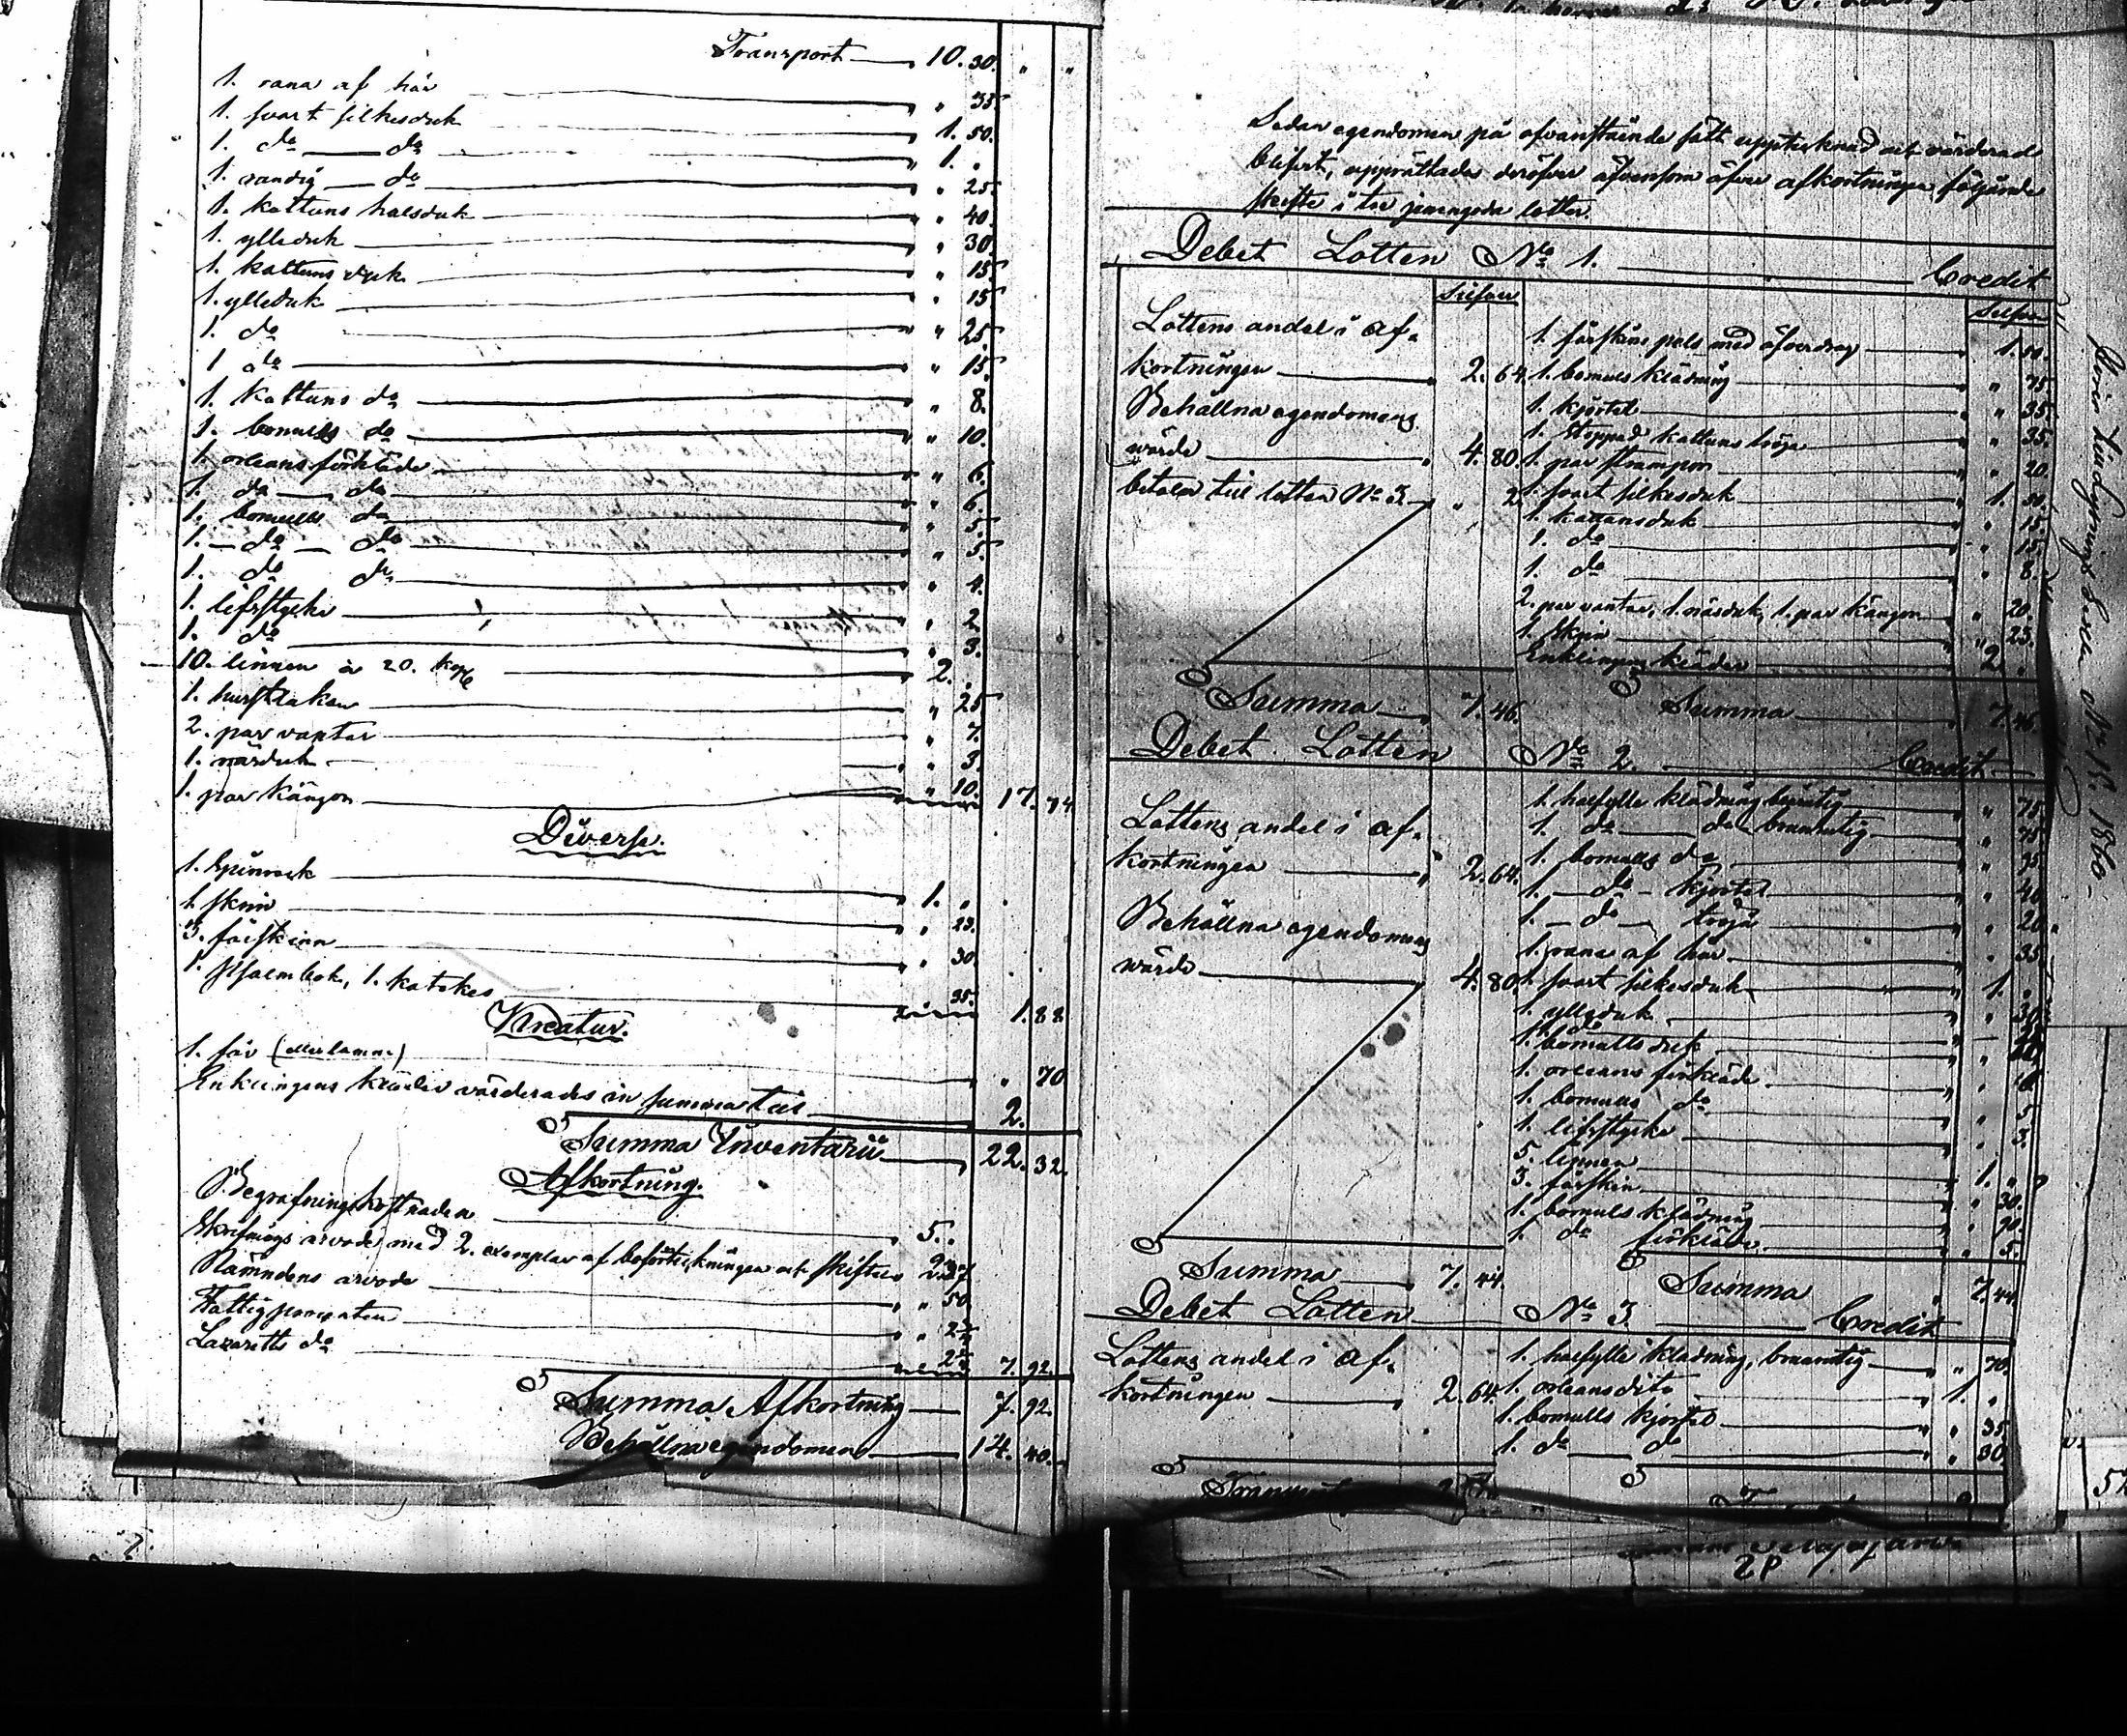 Transport 10. 30. " "
1. rana af hår " 35
1. svart silkesduk 1. 50.
1. do do 1. "
1. randig do " 25
1. kattuns halsduk " 40.
1. ylleduk " 30
1. kattuns duk " 15
1. ylleduk " 15
1. do " 25
1 do " 15
1. kattuns do " 8.
1. bomulls do " 10.
1. orleans förkläde " 6
1. do do " 6.
1. bomulls do " 5.
1. do do " 5.
1. do do " 4.
1. lifstycke " 2
1. do " 3.
10. linnen à 20. kop 2. "
1. hurstlakan " 25
2. par vantar " 7.
1. näsduk " 3.
1. par kängor " 10. 17. 74
Diverse.
1. Spinrock 1. "
1. skrin " 23.
3. fårskinn " 30.
1. Psalmbok, 1. katekes " 35. 1. 88
Kreatur.
1. får " 70
Enklingens kläder värderades in summa till 2. "
Summa Inventarii 22. 32.
Afkortning.
Begrafningskostnaden 5. "
Skrifnings arvode med 2. exemplar af boförteckningen och skiftet
Nämndens arvode " 50
Fattigprocenten
Lazaretts do 7. 92.
Summa Afkortning 7. 92.
Behållna egendomen 14. 40.
Sedan egendomen på ofvanstående sätt uppteknad och värderad
blifvit, upprättades deröfver äfvensom öfver afkortningen följande
skifte i tre jemngoda lotter.
Debet Lotten No 1. Credit
Silfver Silfver
Lottens andel i af-
kortningen 2. 64.
Behållna egendomens
wärde 4. 80
betalar till lotten No 3. " 2
1. fårskins pels med öfverdrag 1. 50.
1. bomulls klädning " 75
1. kjortel " 35.
1. stoppad kattuns tröja " 35.
1. par strumpor " 20.
1. svart silkesduk 1. 50.
1. kattunsduk " 15
1. do " 15
1. do " 8.
2. par vantar, 1. näsduk, 1. par kängor " 20.
1. skrin " 23.
Enklingens kläder 2. "
Summa 7. 46. Summa 7. 46.
Debet Lotten No 2. Credit
Lottens andel i af-
kortningen 2. 64.
Behållna egendomens
wärde 4. 80
1. halfylle klädning " 75
1. do do brunrutig " 75
1. bomulls do
1. do kjortel " 40
1. do tröja " 20.
1. rana af hår " 35
1. svart silkesduk 1. "
1. ylleduk " 30
1. do
1. bomulls duk
1. orleans förkläde
1. bomulls do " 5
1. lifstycke " 3.
5. linnen 1. "
3. fårskin " 30.
1. bomulls klädning
1. do förkläde " 5.
Summa 7. 44. Summa 7. 44.
Debet Lotten No 3. Credit
Lottens andel i af-
kortningen 2. 64.
1. halfylle klädning, brunrutig " 70.
1. orleans dito 1. "
1. bomulls kjortel " 35.
1. do do " 30
Transport
1860
2P